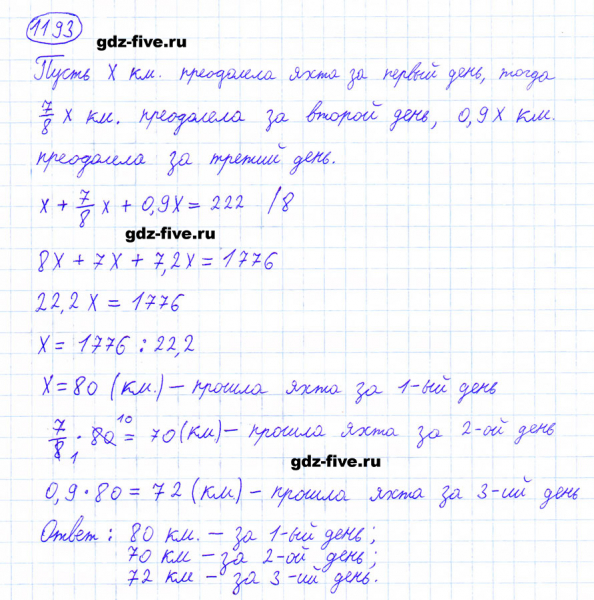 1193
gdz-five.ru
Пусть x км. преодолела яхта за первый день, тогда
7/8 x км. преодолела за второй день, 0,9x км.
преодолела за третий день.
x + 7/8 x + 0,9x = 222 /8
gdz-five.ru
8x + 7x + 7,2x = 1776
22,2x = 1776
x = 1776 : 22,2
x = 80 (км.) – прошла яхта за 1-ый день
7/8 1 · 80 10 = 70 (км) – прошла яхта за 2-ой день
gdz-five.ru
0,9 · 80 = 72 (км) – прошла яхта за 3-ий день
Ответ: 80 км. – за 1-ый день;
70 км – за 2-ой день;
72 км – за 3-ий день.